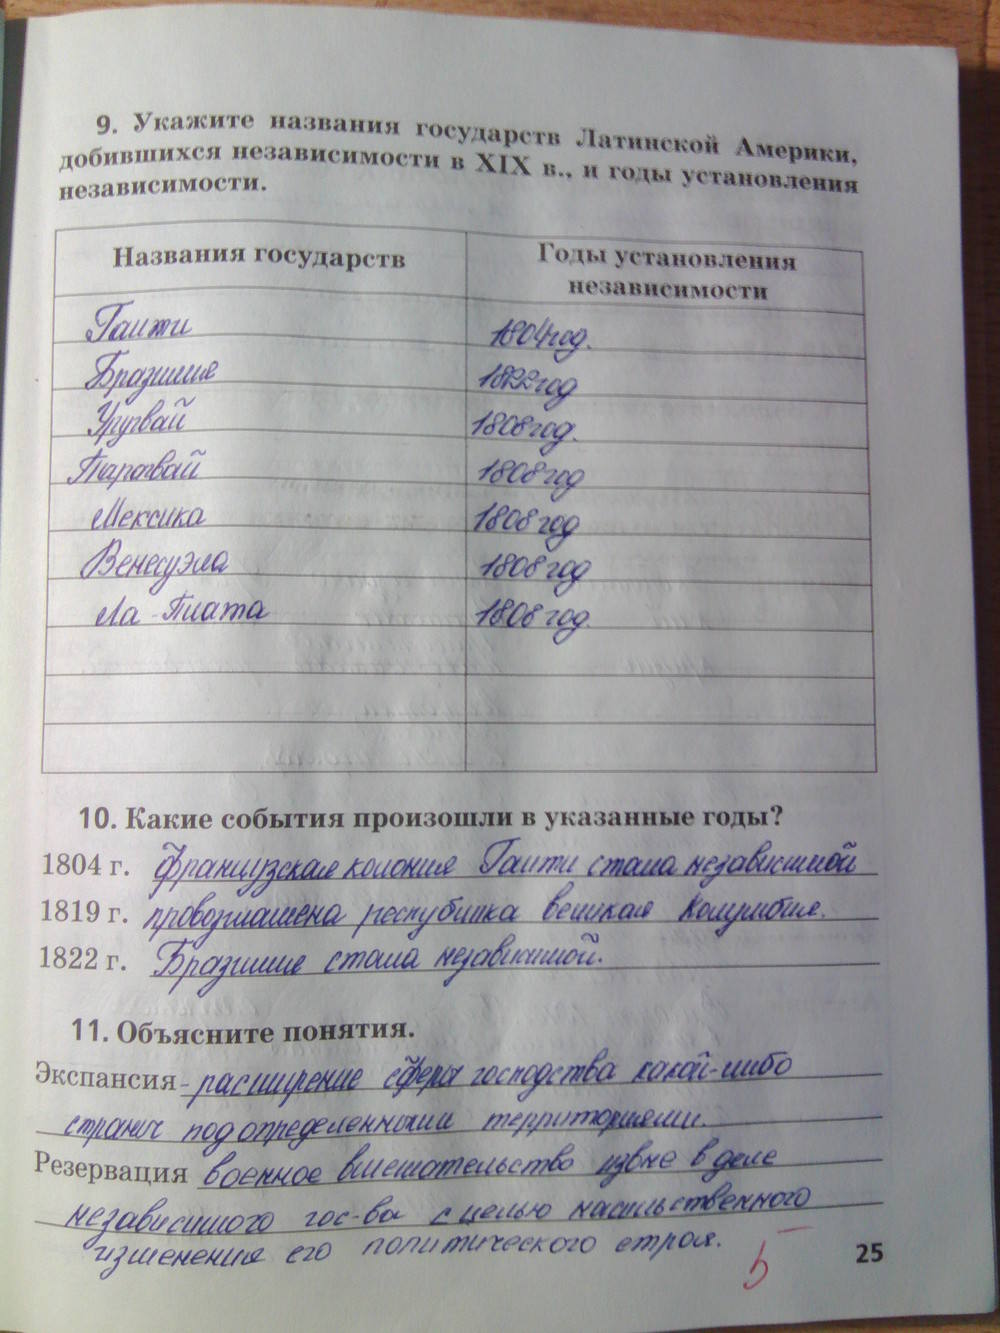 9. Укажите названия государств Латинской Америки,
добившихся независимости в XIX в., и годы установления
независимости.
Названия государств
Годы установления
независимости
Гаити 1804 год.
Бразилия 1822 год
Уругвай 1808 год.
Парагвай 1808 год
Мексика 1808 год
Венесуэла 1808 год
Ла-Плата 1808 год.
10. Какие события произошли в указанные годы?
1804 г. Французская колония Гаити стала независимой
1819 г. провозглашена республика великая Колумбия.
1822 г. Бразилия стала независимой.
11. Объясните понятия.
Экспансия - расширение сферы господства какой-либо
страны над определенными территориями.
Резервация военное вмешательство извне в деле
независимого гос-ва с целью насильственного
изменения его политического строя.
5
25